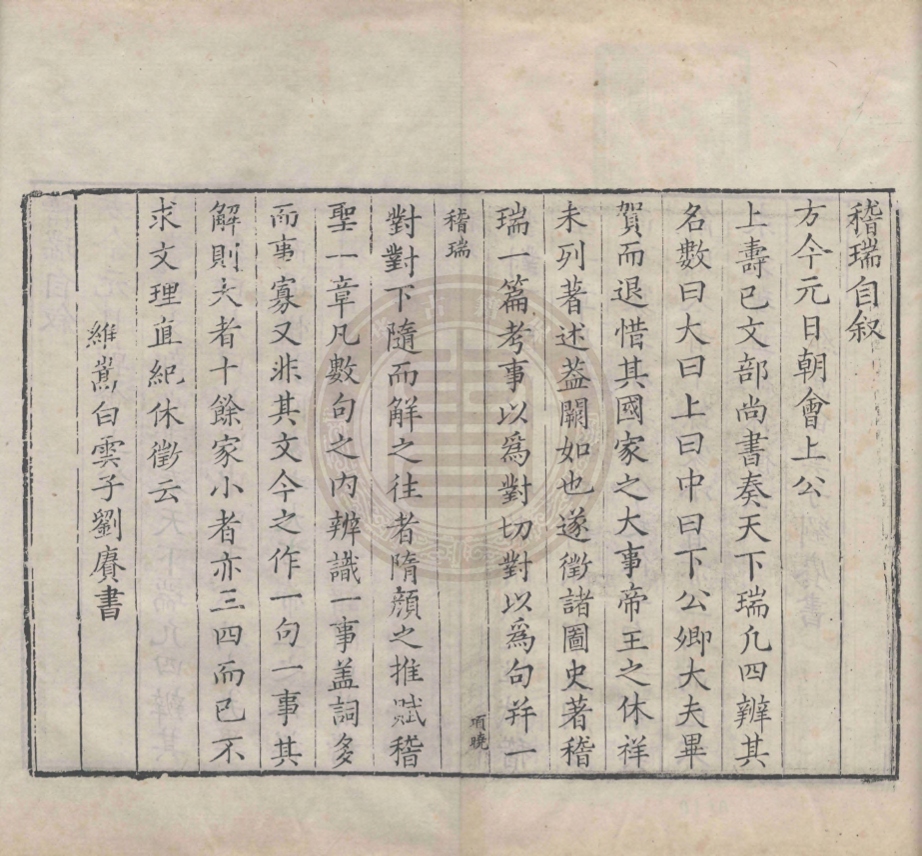 稽瑞自叙
方今元日朝會上公
上壽已文部尚書奏天下瑞凢四辨其
名數曰大曰上曰中曰下公卿大夫畢
賀而退惜其國家之大事帝王之休祥
未列著述葢闕如也遂徵諸圖史著稽
瑞一篇考事以爲對切對以爲句幷一
稽瑞
項曉
對對下隨而解之往者隋顔之推賦稽
聖一章凡數句之内辨識一事盖詞多
而事寡又非其文今之作一句一事其
解則大者十餘家小者亦三四而已不
求文理直紀休徵云
維嵩白雲子劉賡書